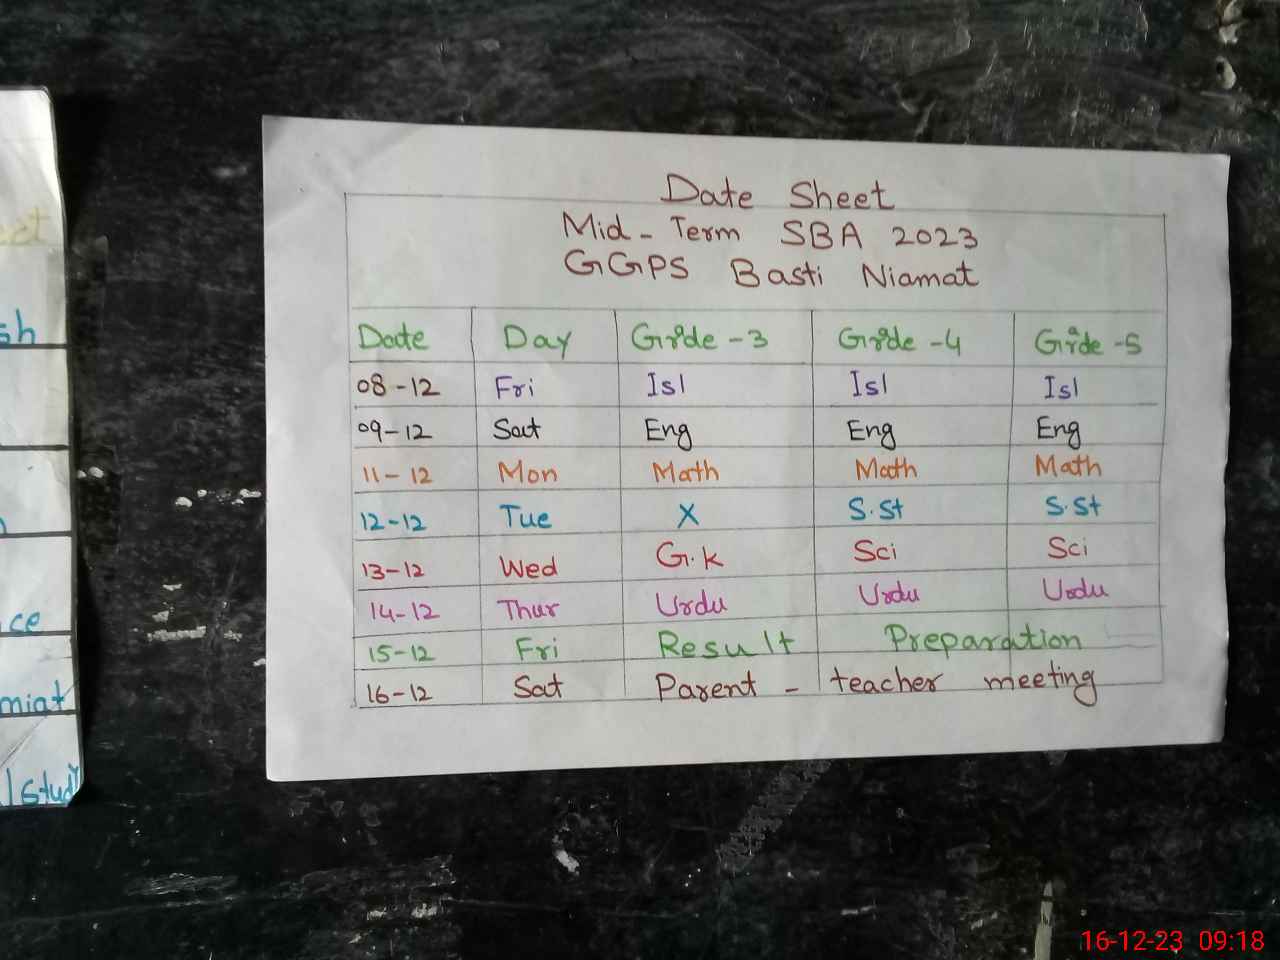 Date Sheet
Mid-Term SBA 2023
GGPS Basti Niamat
Date Day Grade-3 Grade-4 Grade-5
08-12 Fri Isl Isl Isl
09-12 Sat Eng Eng Eng
11-12 Mon Math Math Math
12-12 Tue X S.St S.St
13-12 Wed G.k Sci Sci
14-12 Thur Urdu Urdu Urdu
15-12 Fri Result Preparation
16-12 Sat Parent - teacher meeting
sh
ce
miat
Stud
16-12-23 09:18